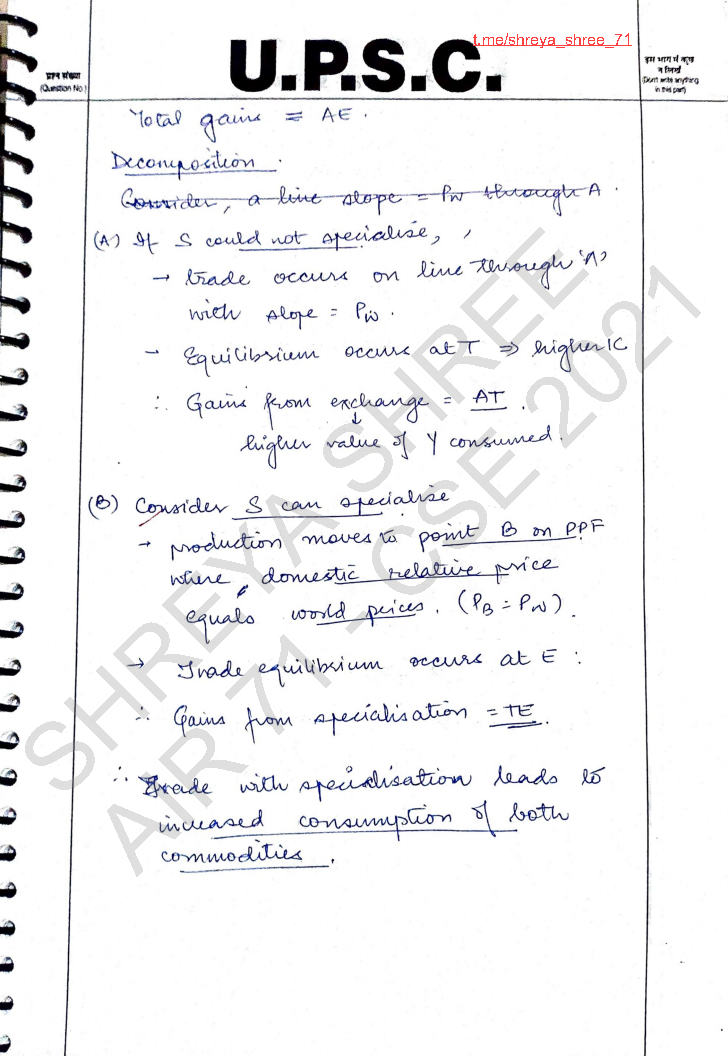 t.me/shreya_shree_71
U.P.S.C.
प्रश्न संख्या
(Question No.)
इस भाग में कुछ
न लिखें
(Don't write anything
in this part)
Total gains = AE.
Decomposition.
Consider, a line slope = Pw through A.
(A) If S could not specialise,
→ trade occurs on line through 'A'
with slope = Pw.
- Equilibrium occurs at T ⇒ higher IC
∴ Gains from exchange = AT.
↓
higher value of Y consumed.
(B) Consider S can specialise
→ production moves to point B on PPF
where, domestic relative price
equals world prices. (PB = PW).
→ Trade equilibrium occurs at E :
∴ Gains from specialisation = TE.
∴ Trade with specialisation leads to
increased consumption of both
commodities.
SHREYA SHREE
AIR 71 - CSE 2021